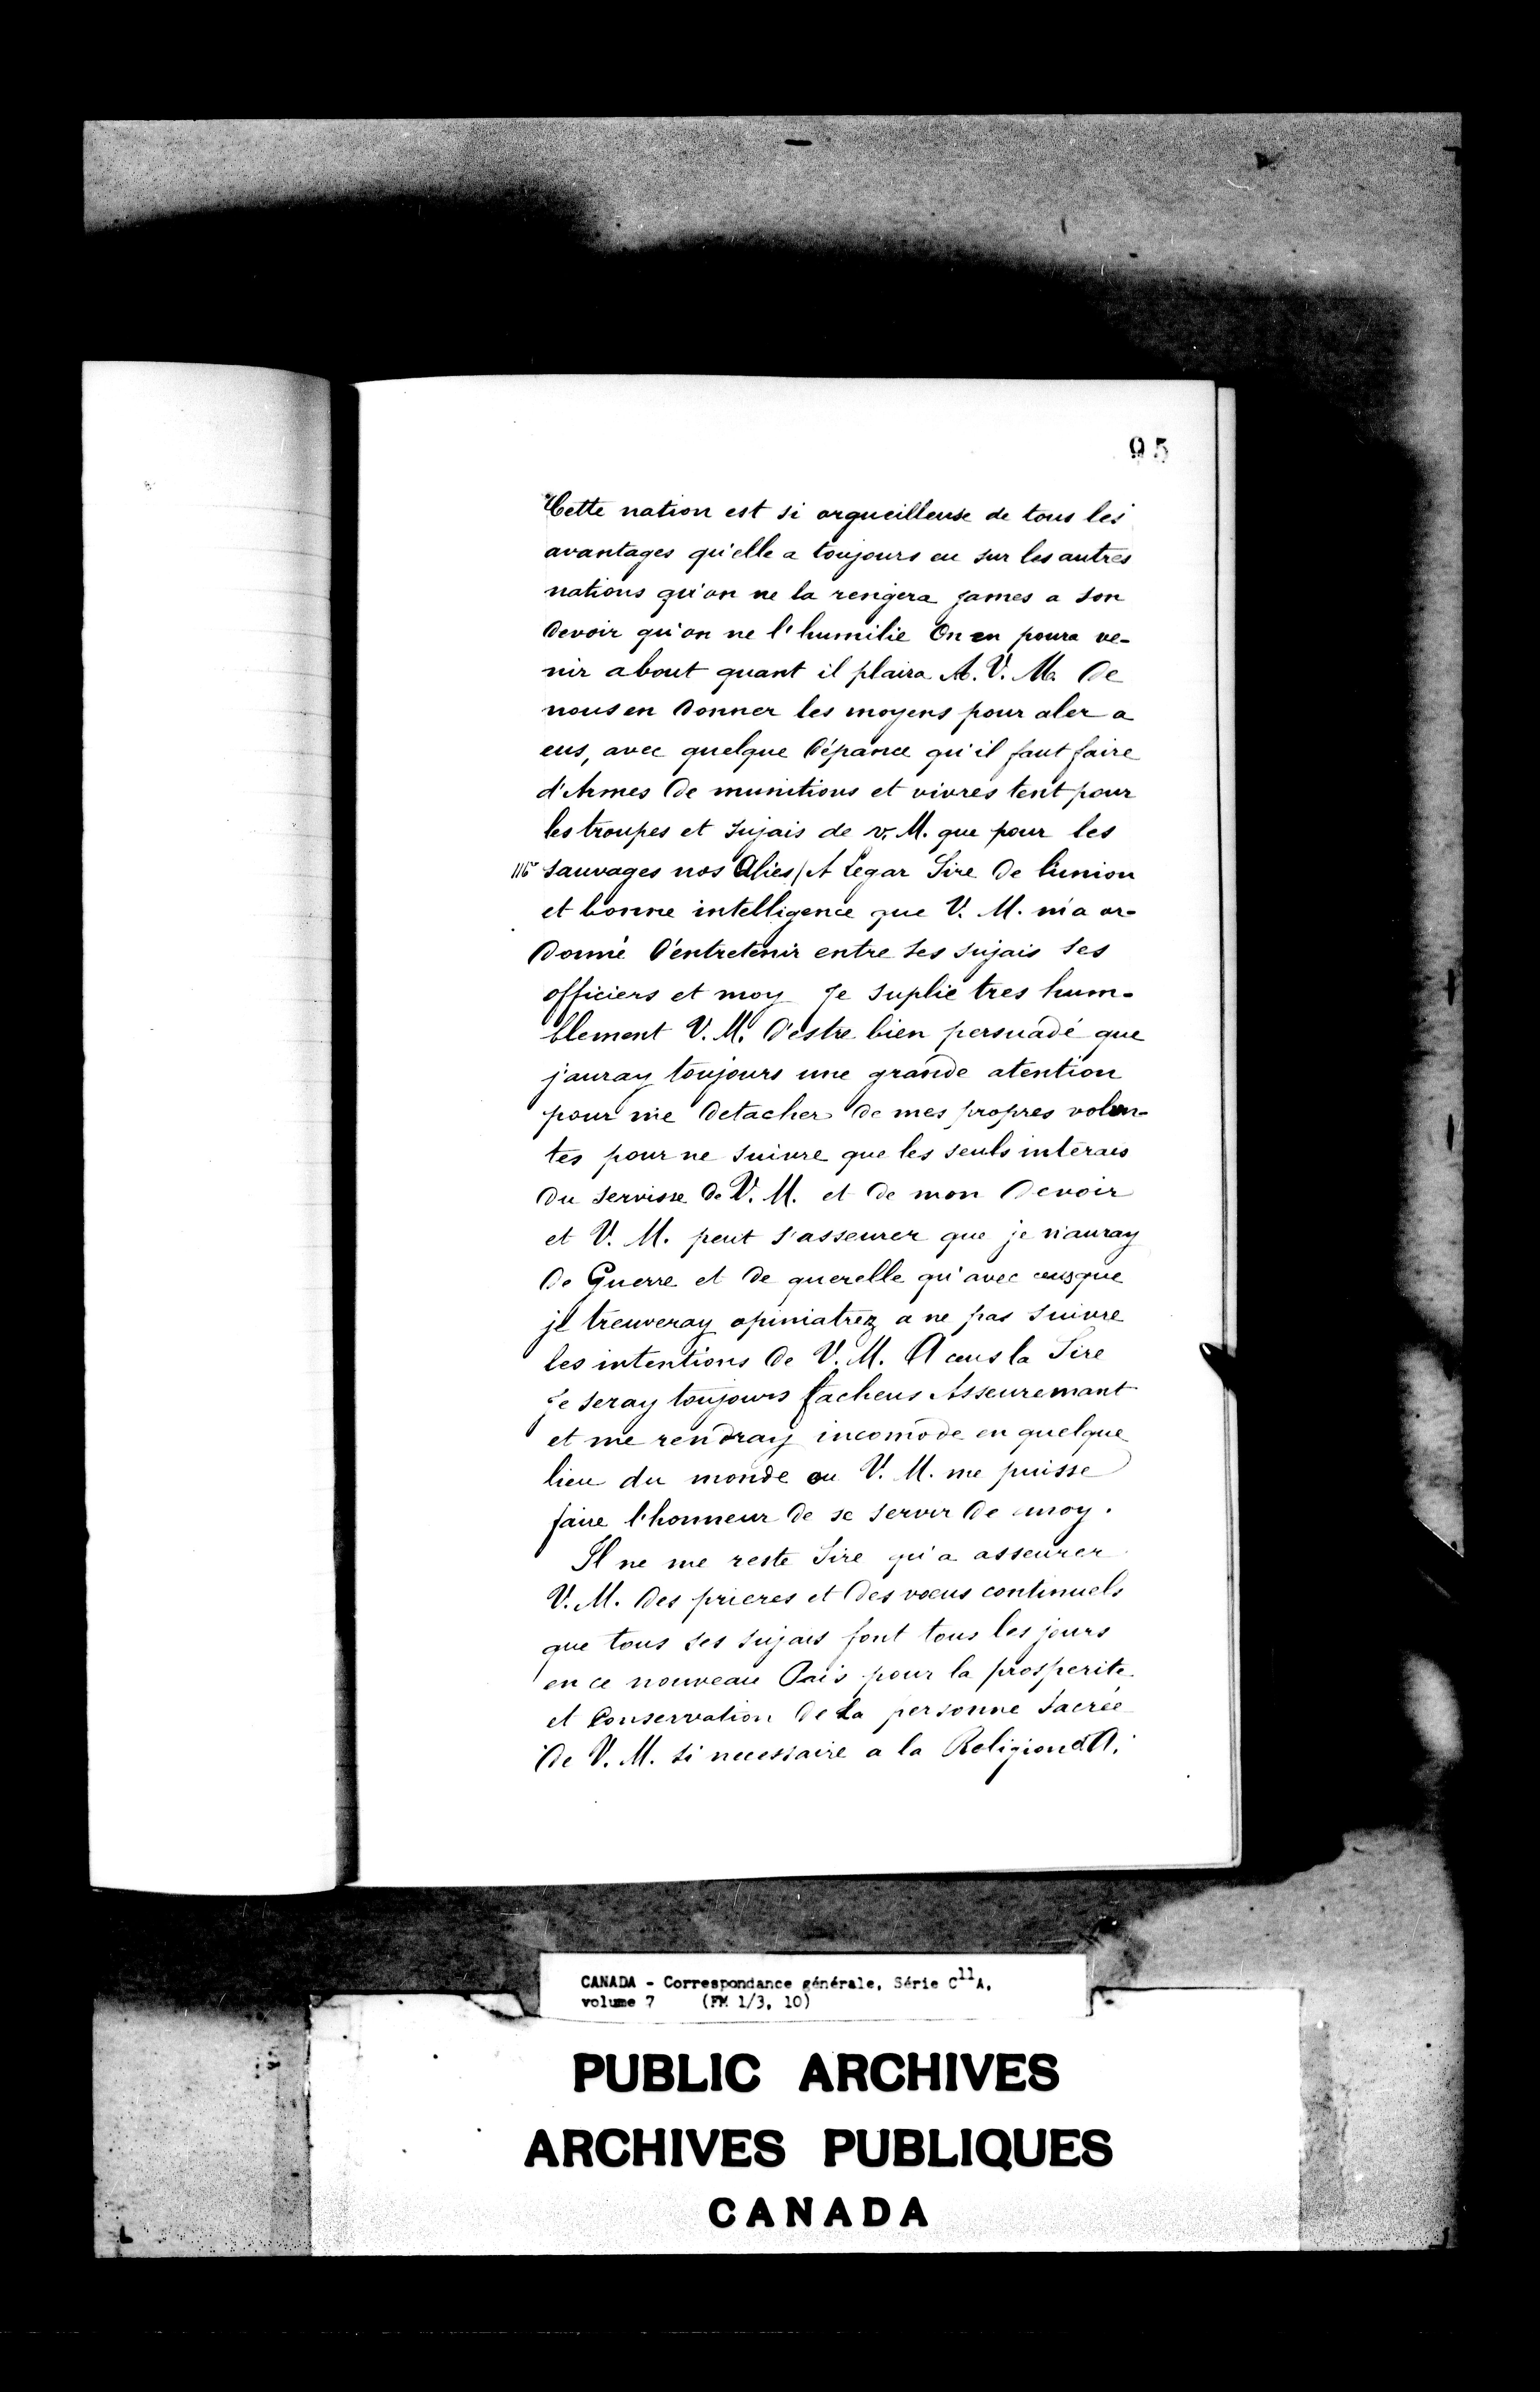 95
Cette nation est si orgueilleuse de tous les
avantages qu'elle a toujours eu sur les autres
nations qu'on ne la rengera james a son
devoir qu'on ne l'humilie On en poura ve-
nir about quant il plaira A. V. M. de
nous en donner les moyens pour aler a
eus, avec quelque dépance qu'il faut faire
d'Armes de munitions et vivres tent pour
les troupes et sujais de v. M. que pour les
116v sauvages nos Aliés/A Legar Sire de l'union
et bonne intelligence que V. M. m'a or-
donné d'entretenir entre ses sujais ses
officiers et moy Je suplie tres hum-
blement V. M. d'estre bien persuadé que
j'auray toujours une grande atention
pour me detacher de mes propres volon-
tes pour ne suivre que les seuls interais
du servisse de V. M. et de mon devoir
et V. M. peut s'asseurer que je n'auray
de Guerre et de querelle qu'avec ceus que
je treuveray opiniatrez a ne pas suivre
les intentions de V. M. A ceus la Sire
Je seray toujours facheus Asseuremant
et me rendray incomode en quelque
lieu du monde ou V. M. me puisse
faire l'honneur de se servir de moy.
Il ne me reste Sire qu'a asseurer
V. M. des prieres et des voeus continuels
que tous ses sujais font tous les jours
en ce nouveau Pais pour la prosperite
et Conservation de La personne sacrée
de V. M. si necessaire a la Religion et A.
CANADA - Correspondance générale, Série C11A,
volume 7 (FM 1/3, 10)
PUBLIC ARCHIVES
ARCHIVES PUBLIQUES
CANADA